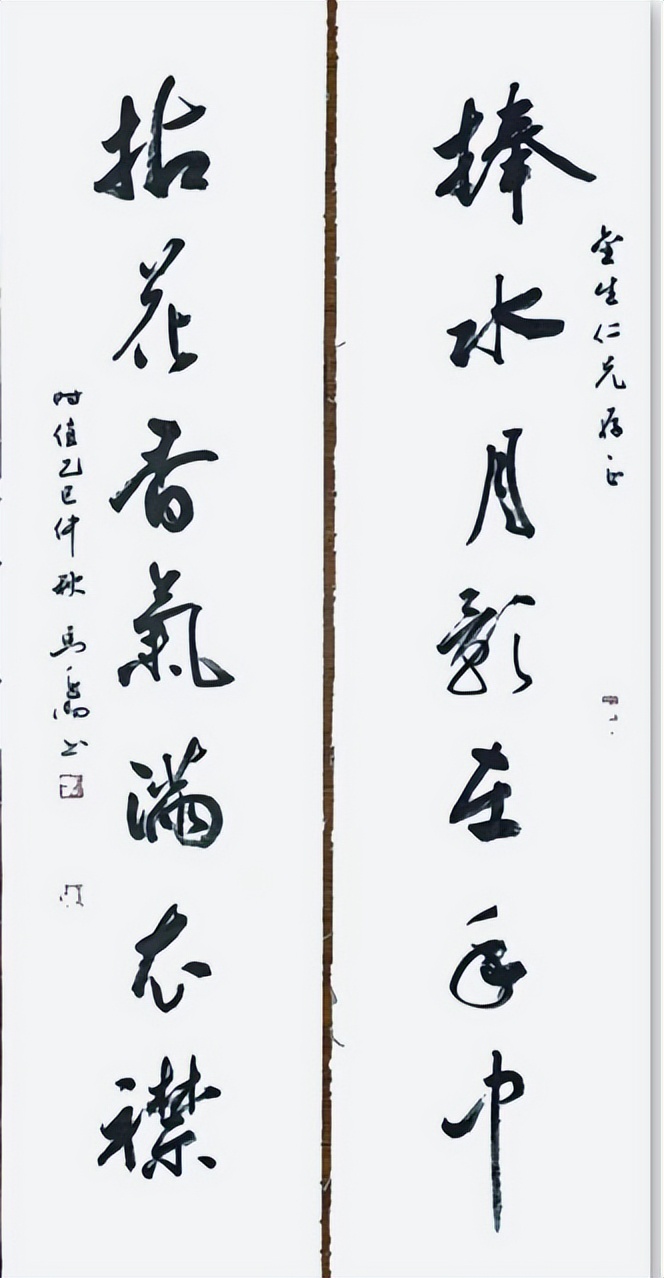 捧水月影在手中
金生仁兄
拈花香氣滿衣襟
時值乙巳仲秋